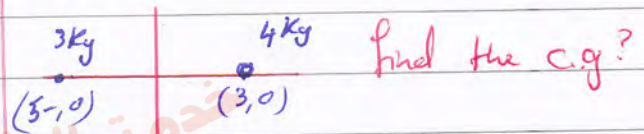 3Kg 4Kg find the c.g?
(5-,0) (3,0)